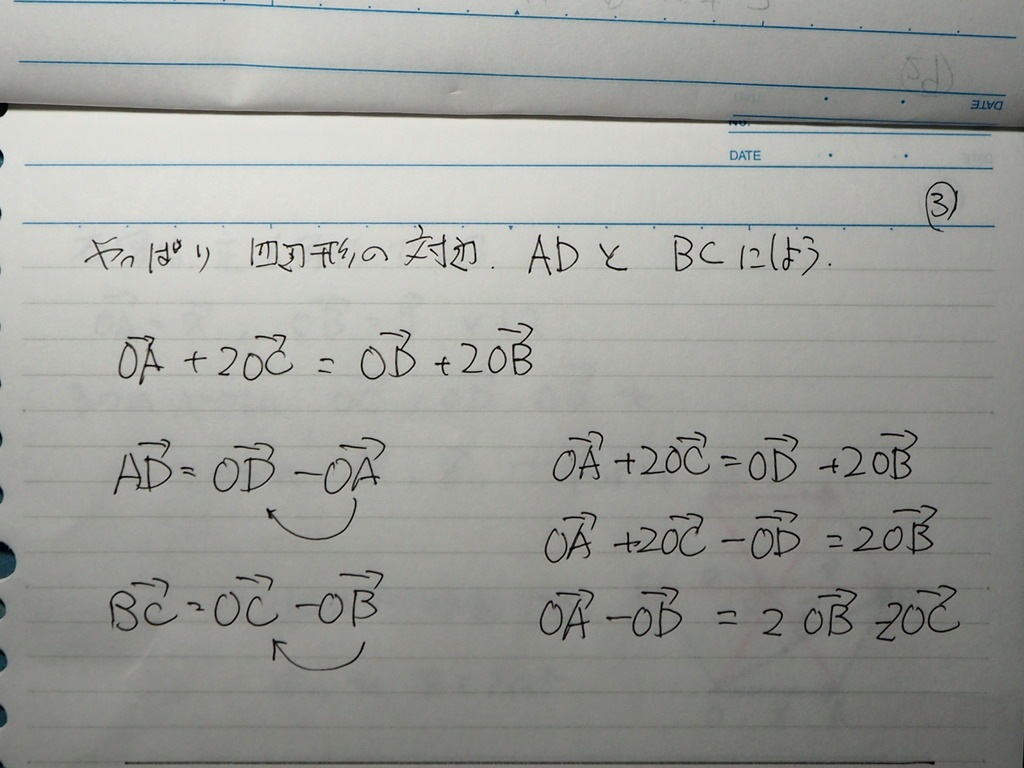 DATE
NO.
DATE
③
やっぱり 四辺形の対辺. ADと BCにしよう.
→OA + 2→OC = →OD + 2→OB
→AD = →OD - →OA
→BC = →OC - →OB
→OA + 2→OC = →OD + 2→OB
→OA + 2→OC - →OD = 2→OB
→OA - →OD = 2 →OB - 2→OC